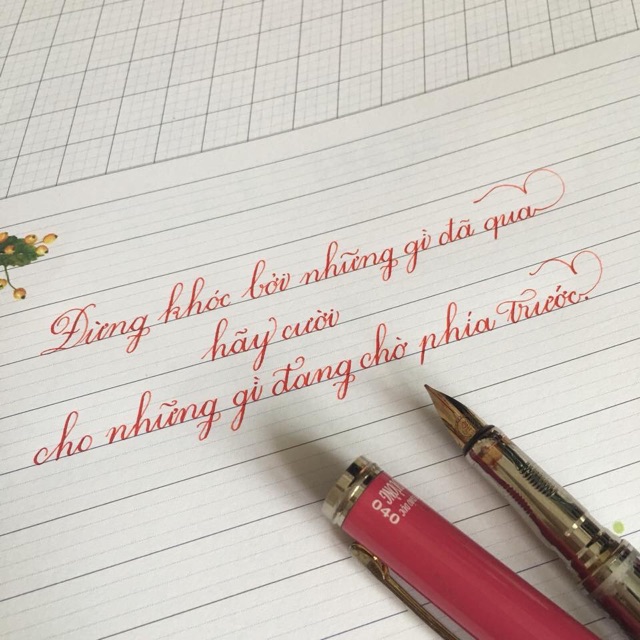 Đừng khóc bởi những gì đã qua
hãy cười
cho những gì đang chờ phía trước.
040